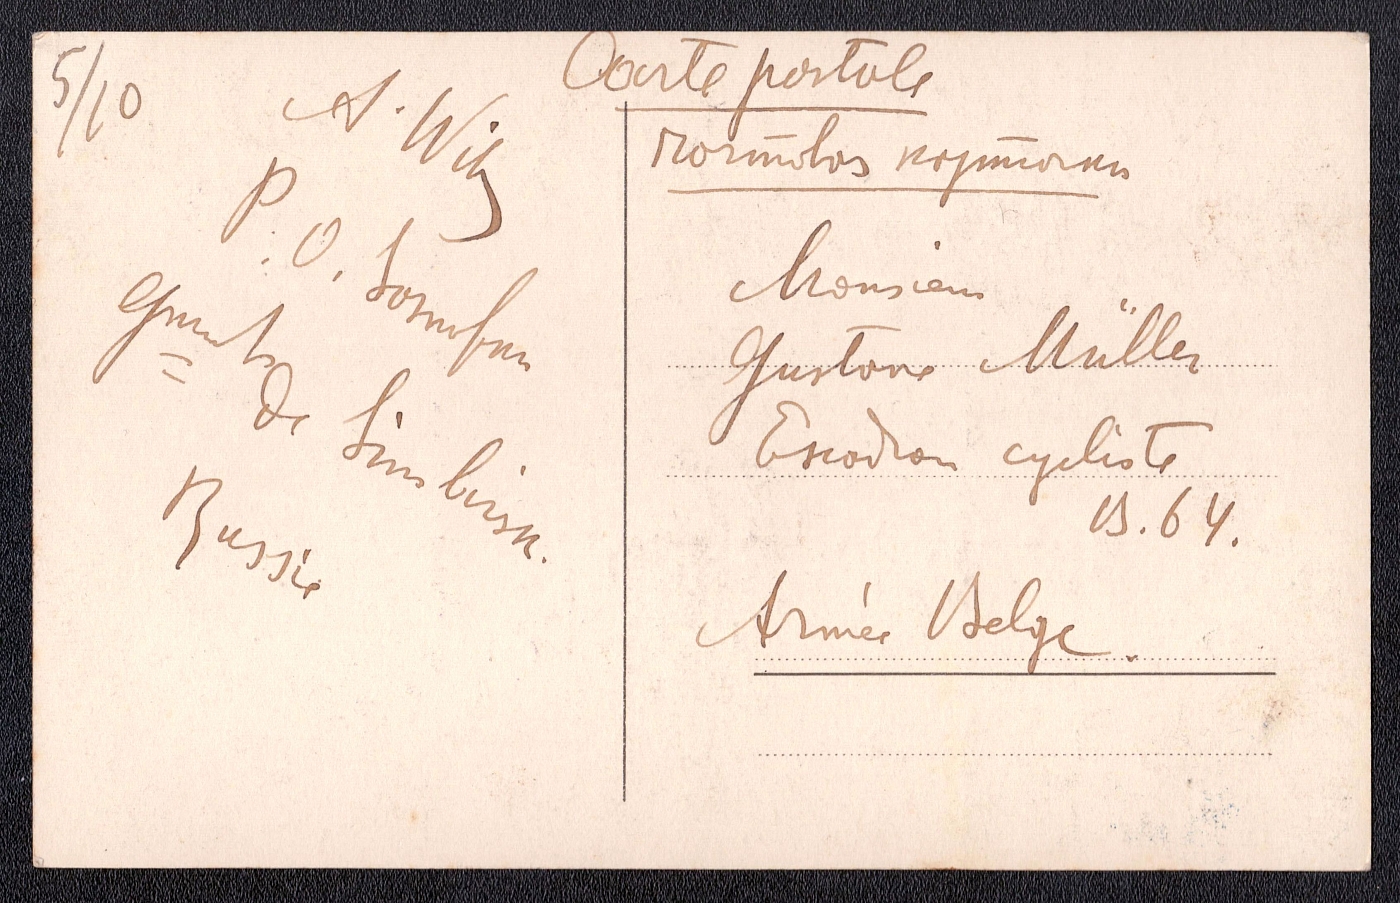 5/10
A. Wily
P. O.
Gouvt
De Simbirsk.
Russie
Carte postale
почтовая карточка
Monsieur
Gustave Müller
Escadron cycliste
B. 64.
Armée Belge.